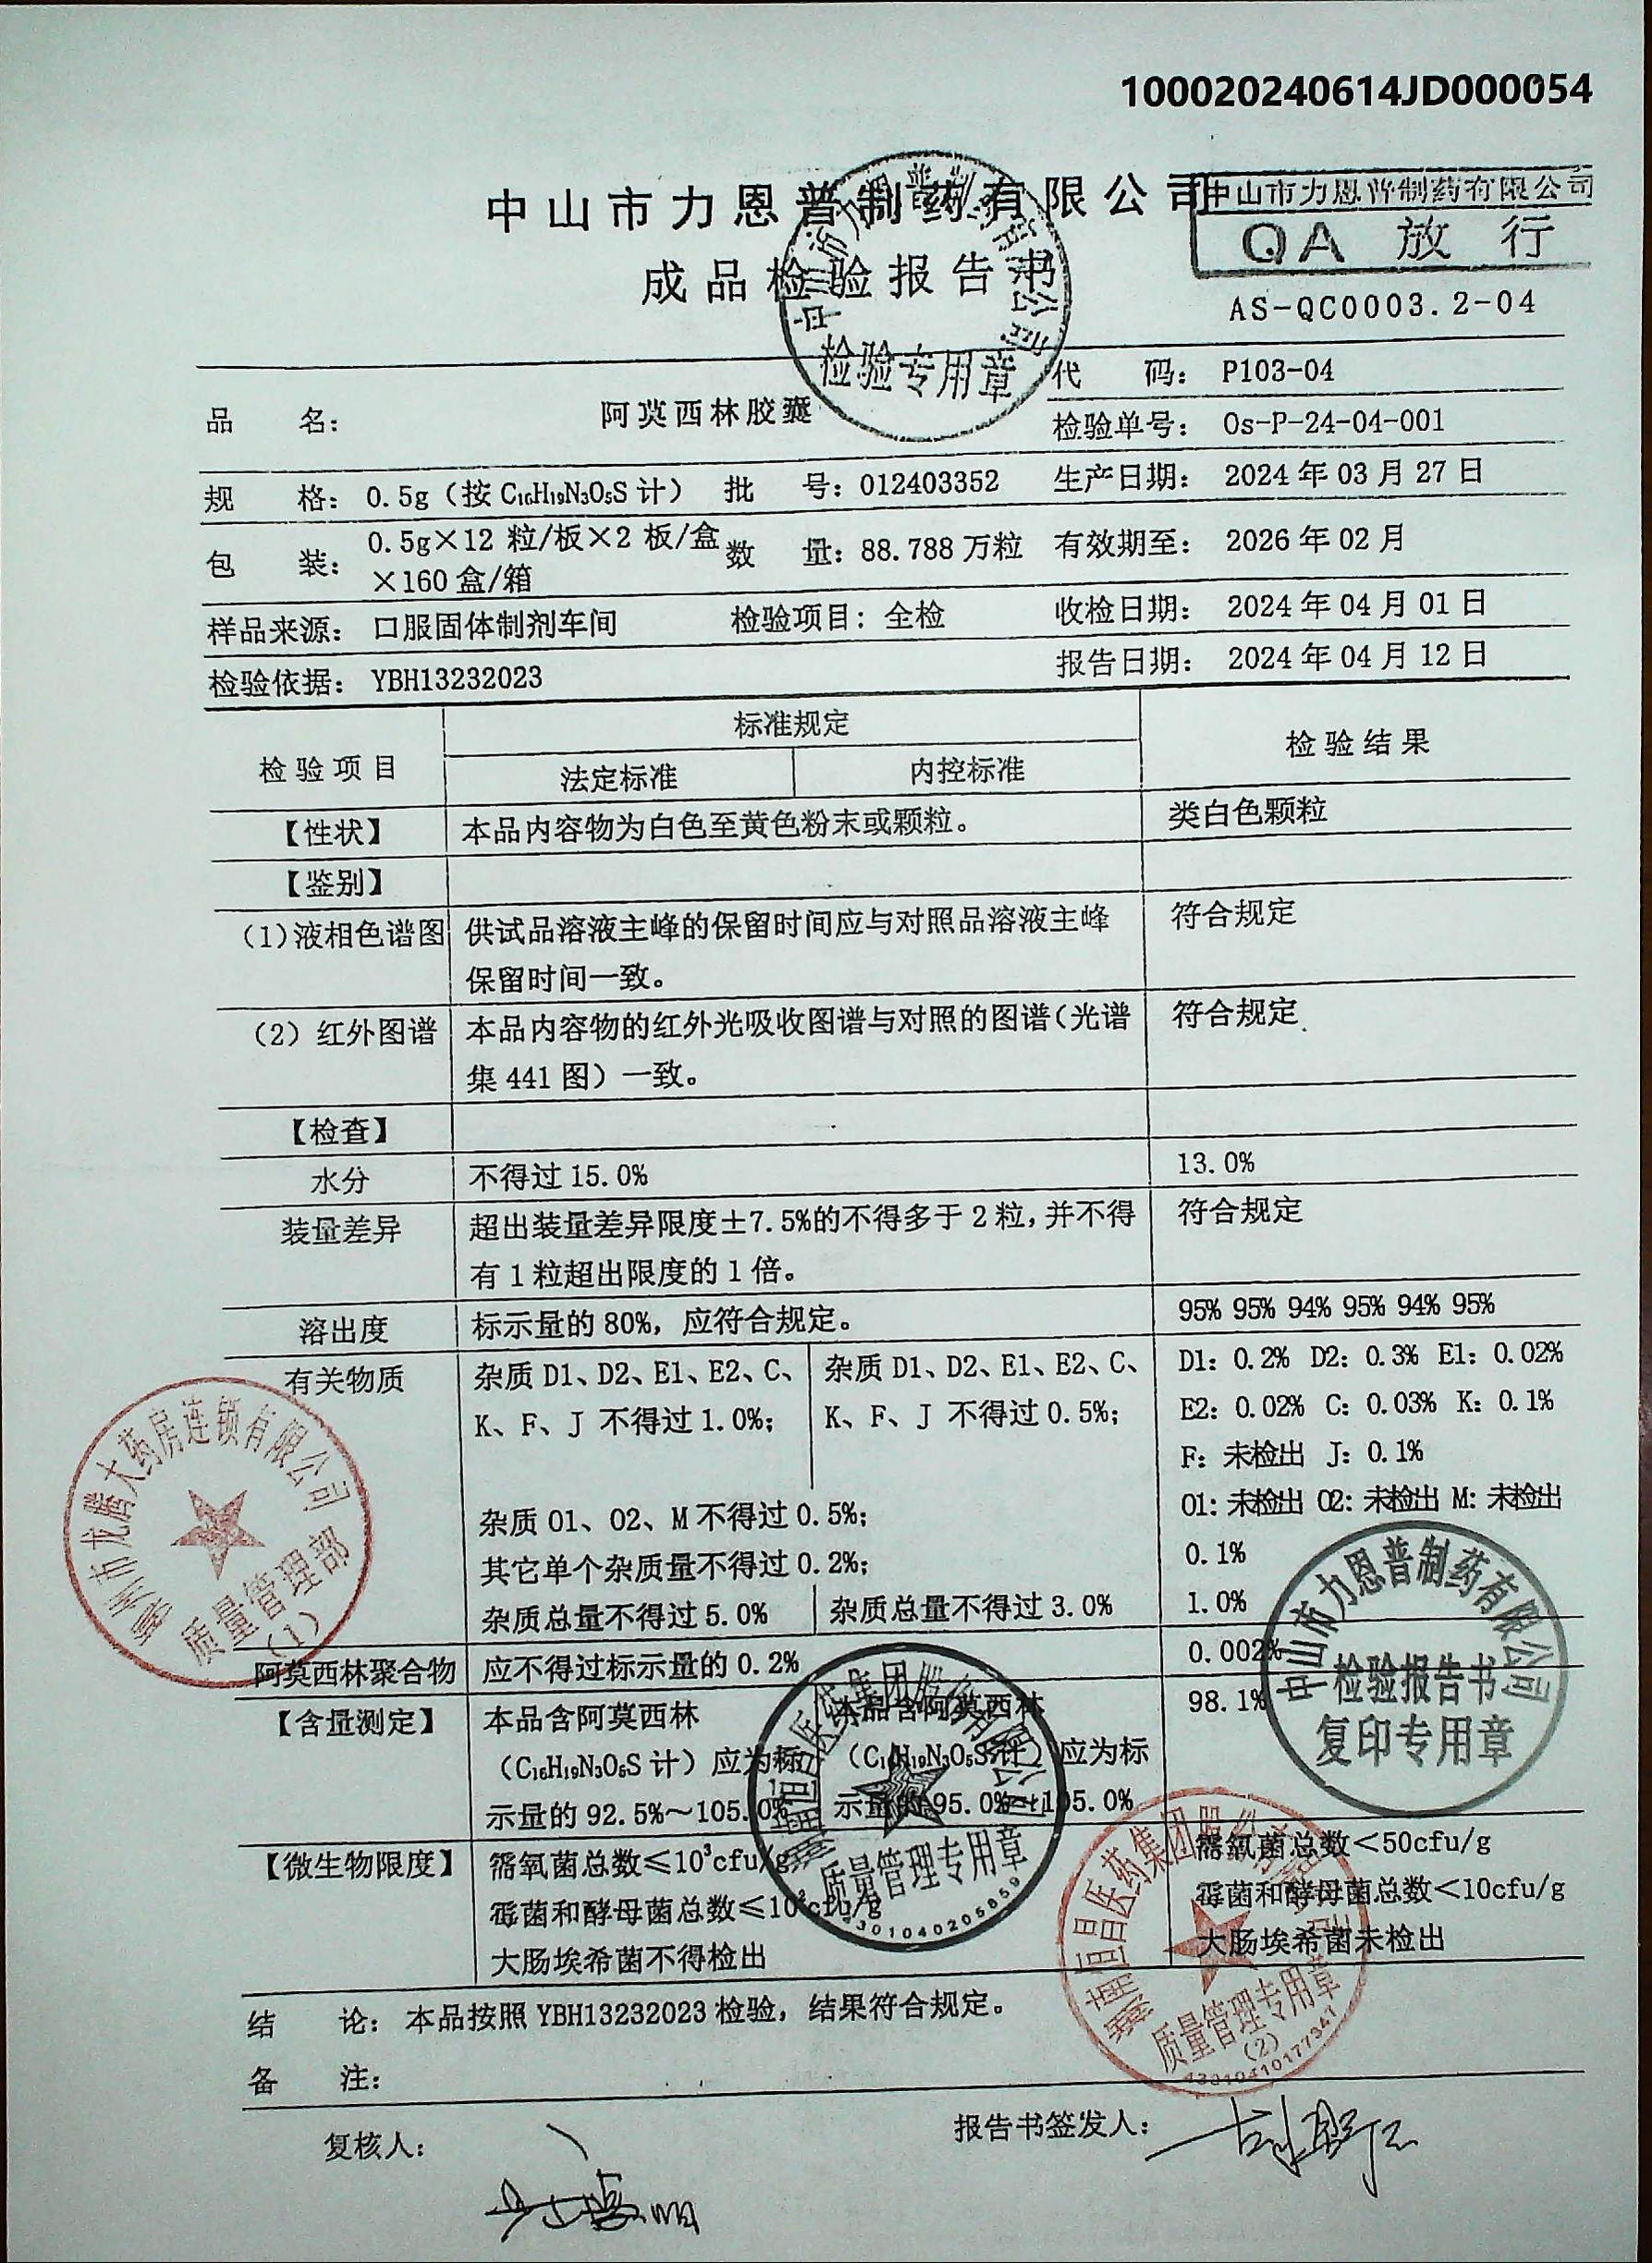 100020240614JD000054
中山市力恩普制药有限公司
中山市力恩普制药有限公司
QA 放 行
成品检验报告书
中山市力恩普制药有限公司
检验专用章
AS-QC0003.2-04
品 名： 阿莫西林胶囊
代 码： P103-04
检验单号： Os-P-24-04-001
规 格： 0.5g（按 C₁₆H₁₉N₃O₅S 计） 批 号：012403352 生产日期： 2024 年 03 月 27 日
包 装： 0.5g×12 粒/板×2 板/盒
×160 盒/箱
数 量：88.788 万粒 有效期至： 2026 年 02 月
样品来源： 口服固体制剂车间 检验项目：全检 收检日期： 2024 年 04 月 01 日
检验依据： YBH13232023 报告日期： 2024 年 04 月 12 日
检验项目 标准规定 检验结果
法定标准 内控标准
【性状】 本品内容物为白色至黄色粉末或颗粒。 类白色颗粒
【鉴别】
（1）液相色谱图 供试品溶液主峰的保留时间应与对照品溶液主峰 符合规定
保留时间一致。
（2）红外图谱 本品内容物的红外光吸收图谱与对照的图谱（光谱 符合规定
集 441 图）一致。
【检查】
水分 不得过 15.0% 13.0%
装量差异 超出装量差异限度±7.5%的不得多于 2 粒，并不得 符合规定
有 1 粒超出限度的 1 倍。
溶出度 标示量的 80%，应符合规定。 95% 95% 94% 95% 94% 95%
有关物质 杂质 D1、D2、E1、E2、C、 杂质 D1、D2、E1、E2、C、 D1：0.2% D2：0.3% E1：0.02%
K、F、J 不得过 1.0%； K、F、J 不得过 0.5%； E2：0.02% C：0.03% K：0.1%
F：未检出 J：0.1%
杂质 O1、O2、M 不得过 0.5%； O1：未检出 O2：未检出 M：未检出
其它单个杂质量不得过 0.2%； 0.1%
杂质总量不得过 5.0% 杂质总量不得过 3.0% 1.0%
阿莫西林聚合物 应不得过标示量的 0.2% 0.002%
【含量测定】 本品含阿莫西林 本品含阿莫西林 98.1%
（C₁₆H₁₉N₃O₅S 计）应为标 （C₁₆H₁₉N₃O₅S 计）应为标
示量的 92.5%～105.0% 示量的 95.0%～105.0%
【微生物限度】 需氧菌总数≤10³cfu/g 需氧菌总数＜50cfu/g
霉菌和酵母菌总数≤10²cfu/g 霉菌和酵母菌总数＜10cfu/g
大肠埃希菌不得检出 大肠埃希菌未检出
结 论： 本品按照 YBH13232023 检验，结果符合规定。
备 注：
复核人：
报告书签发人：
市龙腾大药房连锁有限公司
质量管理部
（1）
中山市力恩普制药有限公司
检验报告书
复印专用章
医药集团股份有限公司
质量管理专用章
4301040205859
医药集团股
质量管理专用章
（2）
43010410177347